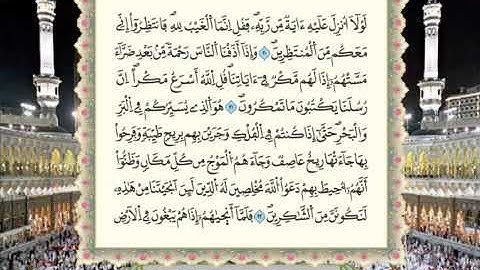 لَوْلَا أُنزِلَ عَلَيْهِ ءَايَةٌ مِّن رَّبِّهِۦ فَقُلْ إِنَّمَا الْغَيْبُ لِلهِ فَانتَظِرُوٓاْ إِنِّے
مَعَكُم مِّنَ الْمُنتَظِرِينَ ٢٠ وَإِذَآ أَذَقْنَا النَّاسَ رَحْمَةً مِّنۢ بَعْدِ ضَرَّآءَ
مَسَّتْهُمُۥٓ إِذَا لَهُم مَّكْرٌ فِےٓ ءَايَاتِنَا قُلِ اللَّهُ أَسْرَعُ مَكْراً اِنَّ
رُسُلَنَا يَكْتُبُونَ مَا تَمْكُرُونَ ٢١ هُوَ ألذِے يُسَيِّرُكُمْ فِے الْبَرِّ
وَالْبَحْرِ حَتَّىٰٓ إِذَا كُنتُمْ فِے الْفُلْكِ وَجَرَيْنَ بِهِم بِرِيحٍ طَيِّبَةٍ وَفَرِحُواْ
بِهَا جَآءَتْهَا رِيحٌ عَاصِفٌ وَجَآءَهُمُ الْمَوْجُ مِن كُلِّ مَكَانٍ وَظَنُّوٓاْ
أَنَّهُمُۥٓ أُحِيطَ بِهِمْ دَعَوُاْ اللَّهَ مُخْلِصِينَ لَهُ الدِّينَ لَئِنَ اَنجَيْتَنَا مِنْ هَٰذِهِۦ
لَنَكُونَنَّ مِنَ الشَّٰكِرِينَ ٢٢ فَلَمَّآ أَنجَيٰهُمُۥٓ إِذَا هُمْ يَبْغُونَ فِے الْأَرْضِ